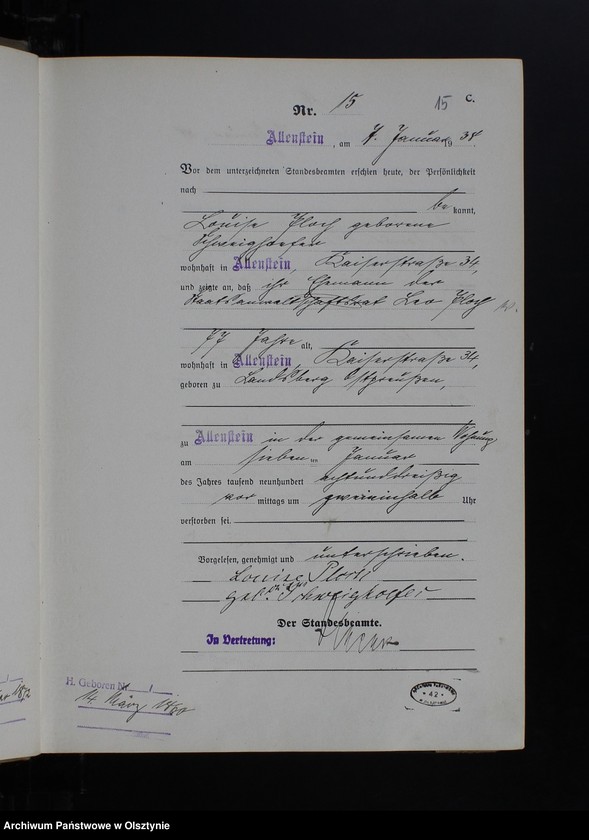 15 C.
Nr. 15
Allenstein, am 7. Januar 1938
Vor dem unterzeichneten Standesbeamten erschien heute, der Persönlichkeit
nach
be kannt,
Louise Ploch geborene
Schweighoefer
wohnhaft in Allenstein, Kaiserstraße 34,
und zeigte an, daß ihr Ehemann der
Staatsanwaltschaftsrat Leo Ploch
77 Jahre alt,
wohnhaft in Allenstein Kaiserstraße 34,
geboren zu Landsberg Ostpreußen,
zu Allenstein in der gemeinsamen Wohnung
am sieben ten Januar
des Jahres tausend neunhundert achtunddreißig
vor mittags um zweieinhalb Uhr
verstorben sei.
Vorgelesen, genehmigt und unterschrieben.
Louise Ploch
geb. Schweighoefer
Der Standesbeamte.
In Vertretung:
H. Geboren Nr.
14 März
42
Archiwum Państwowe w Olsztynie